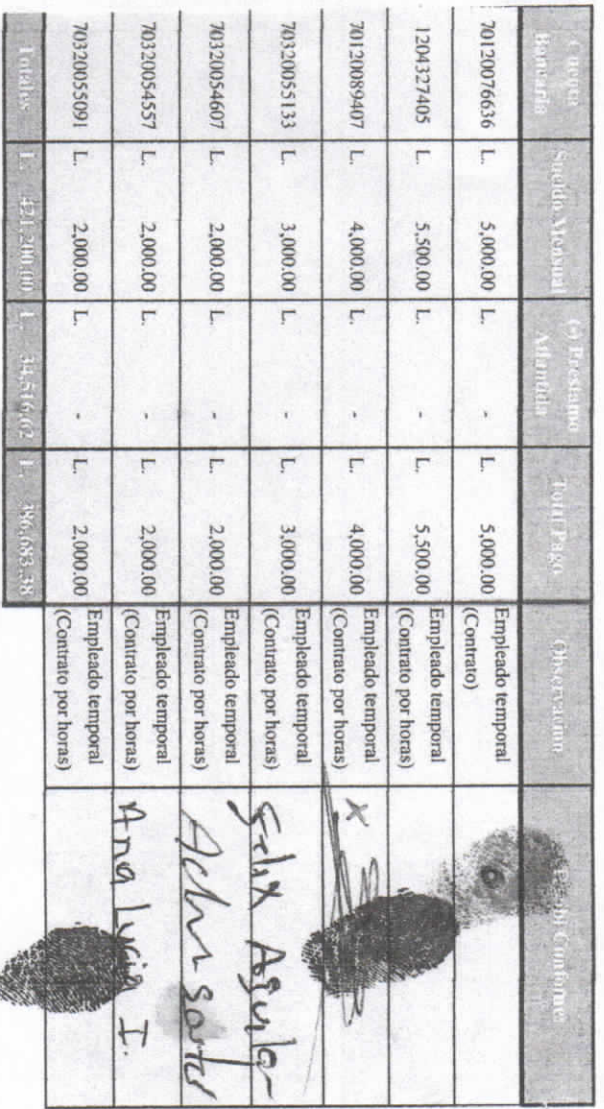 Cuenta Bancaria Sueldo Mensual (-) Prestamo Atlantida Total Pago Observacion Recibi Conforme
70120076636 L. 5,000.00 L. - L. 5,000.00 Empleado temporal (Contrato)
1204327405 L. 5,500.00 L. - L. 5,500.00 Empleado temporal (Contrato por horas)
70120089407 L. 4,000.00 L. - L. 4,000.00 Empleado temporal (Contrato por horas) X
70320055133 L. 3,000.00 L. - L. 3,000.00 Empleado temporal (Contrato por horas) Felix Aguilar
70320054607 L. 2,000.00 L. - L. 2,000.00 Empleado temporal (Contrato por horas)
70320054557 L. 2,000.00 L. - L. 2,000.00 Empleado temporal (Contrato por horas) Ana Lucia I.
70320055091 L. 2,000.00 L. - L. 2,000.00 Empleado temporal (Contrato por horas)
Totales L. 421,200.00 L. 34,516.62 L. 386,683.38